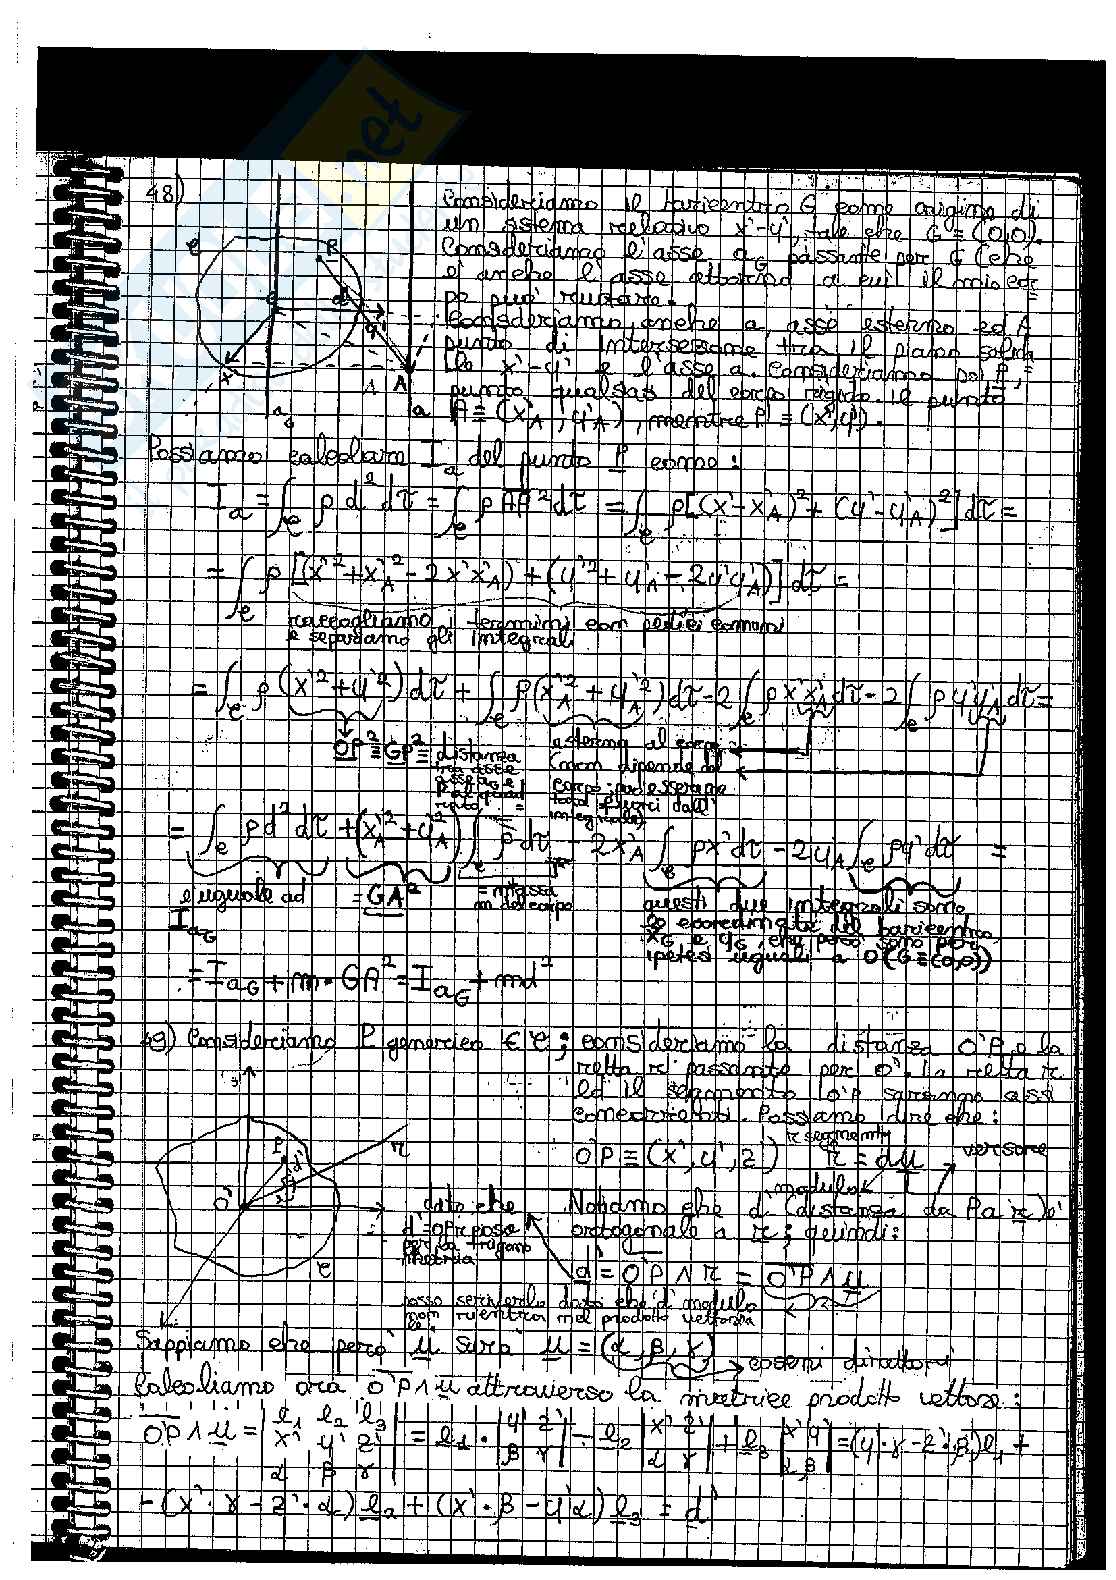 48)
Consideriamo il baricentro G come origine di
un sistema relativo x'-y', tale che G≡(0,0).
Consideriamo l'asse a_G passante per G (che
e' anche l'asse attorno a cui il mio cor
po puo' ruotare.
Consideriamo anche a, asse esterno ed A
punto di intersezione tra il piano solida
le x'-y' e l'asse a. Consideriamo poi P,
punto qualsiasi del corpo rigido. Il punto
A≡(x'_A, y'_A), mentre P≡(x',y').
Possiamo calcolare I_a del punto P come:
I_a = ∫_e ρ d² dτ = ∫_e ρ AP² dτ = ∫_e ρ[(x'-x'_A)² + (y'-y'_A)²] dτ =
= ∫_e ρ[(x'²+x'_A²-2x'x'_A) + (y'²+y'_A²-2y'y'_A)] dτ =
raccogliamo i termini con pedici comuni
e separiamo gli integrali
= ∫_e ρ(x'²+y'²) dτ + ∫_e ρ(x'_A²+y'_A²) dτ - 2∫_e ρx'x'_A dτ - 2∫_e ρy'y'_A dτ =
OP²≡GP²= distanza
tra asse
esterna al corpo
(non dipende dal
corpo; possono essere
fuori dall'
integrale)
= ∫_e ρd² dτ + (x'_A²+y'_A²) ∫_e ρ dτ - 2x'_A ∫_e ρx' dτ - 2y'_A ∫_e ρy' dτ =
e uguale ad I_aG
= GA²
= massa
m del corpo
questi due integrali sono
le coordinate del baricentro
x_G e y_G, che però sono per
ipotesi uguali a 0 (G≡(0,0))
= I_aG + m·GA² = I_aG + md²
49) Consideriamo P generico ∈ e; consideriamo la distanza O'P e la
retta r passante per O'. La retta r
ed il segmento O'P saranno assi
Possiamo dire che:
O'P≡(x',y',z') r = du versore
modulo
Notiamo che d' (distanza da P a r) e'
ortogonale a r; quindi:
dato che
d'
per la trigono
metria
d' = O'P ∧ r = O'P ∧ u
posso scriverlo dato che d modulo
non rientra nel prodotto vettoria
le
Sappiamo che però u sarà u = (α, β, γ)
coseni direttori
Calcoliamo ora O'P∧u attraverso la matrice prodotto vettore:
O'P∧u = |l₁ l₂ l₃ x' y' z' α β γ| = l₁·|y' z' β γ| - l₂|x' z' α γ| + l₃|x' y' α β| = (y'·γ-z'·β)l₁ +
-(x'·γ-z'·α)l₂ + (x'·β-y'α)l₃ = d'